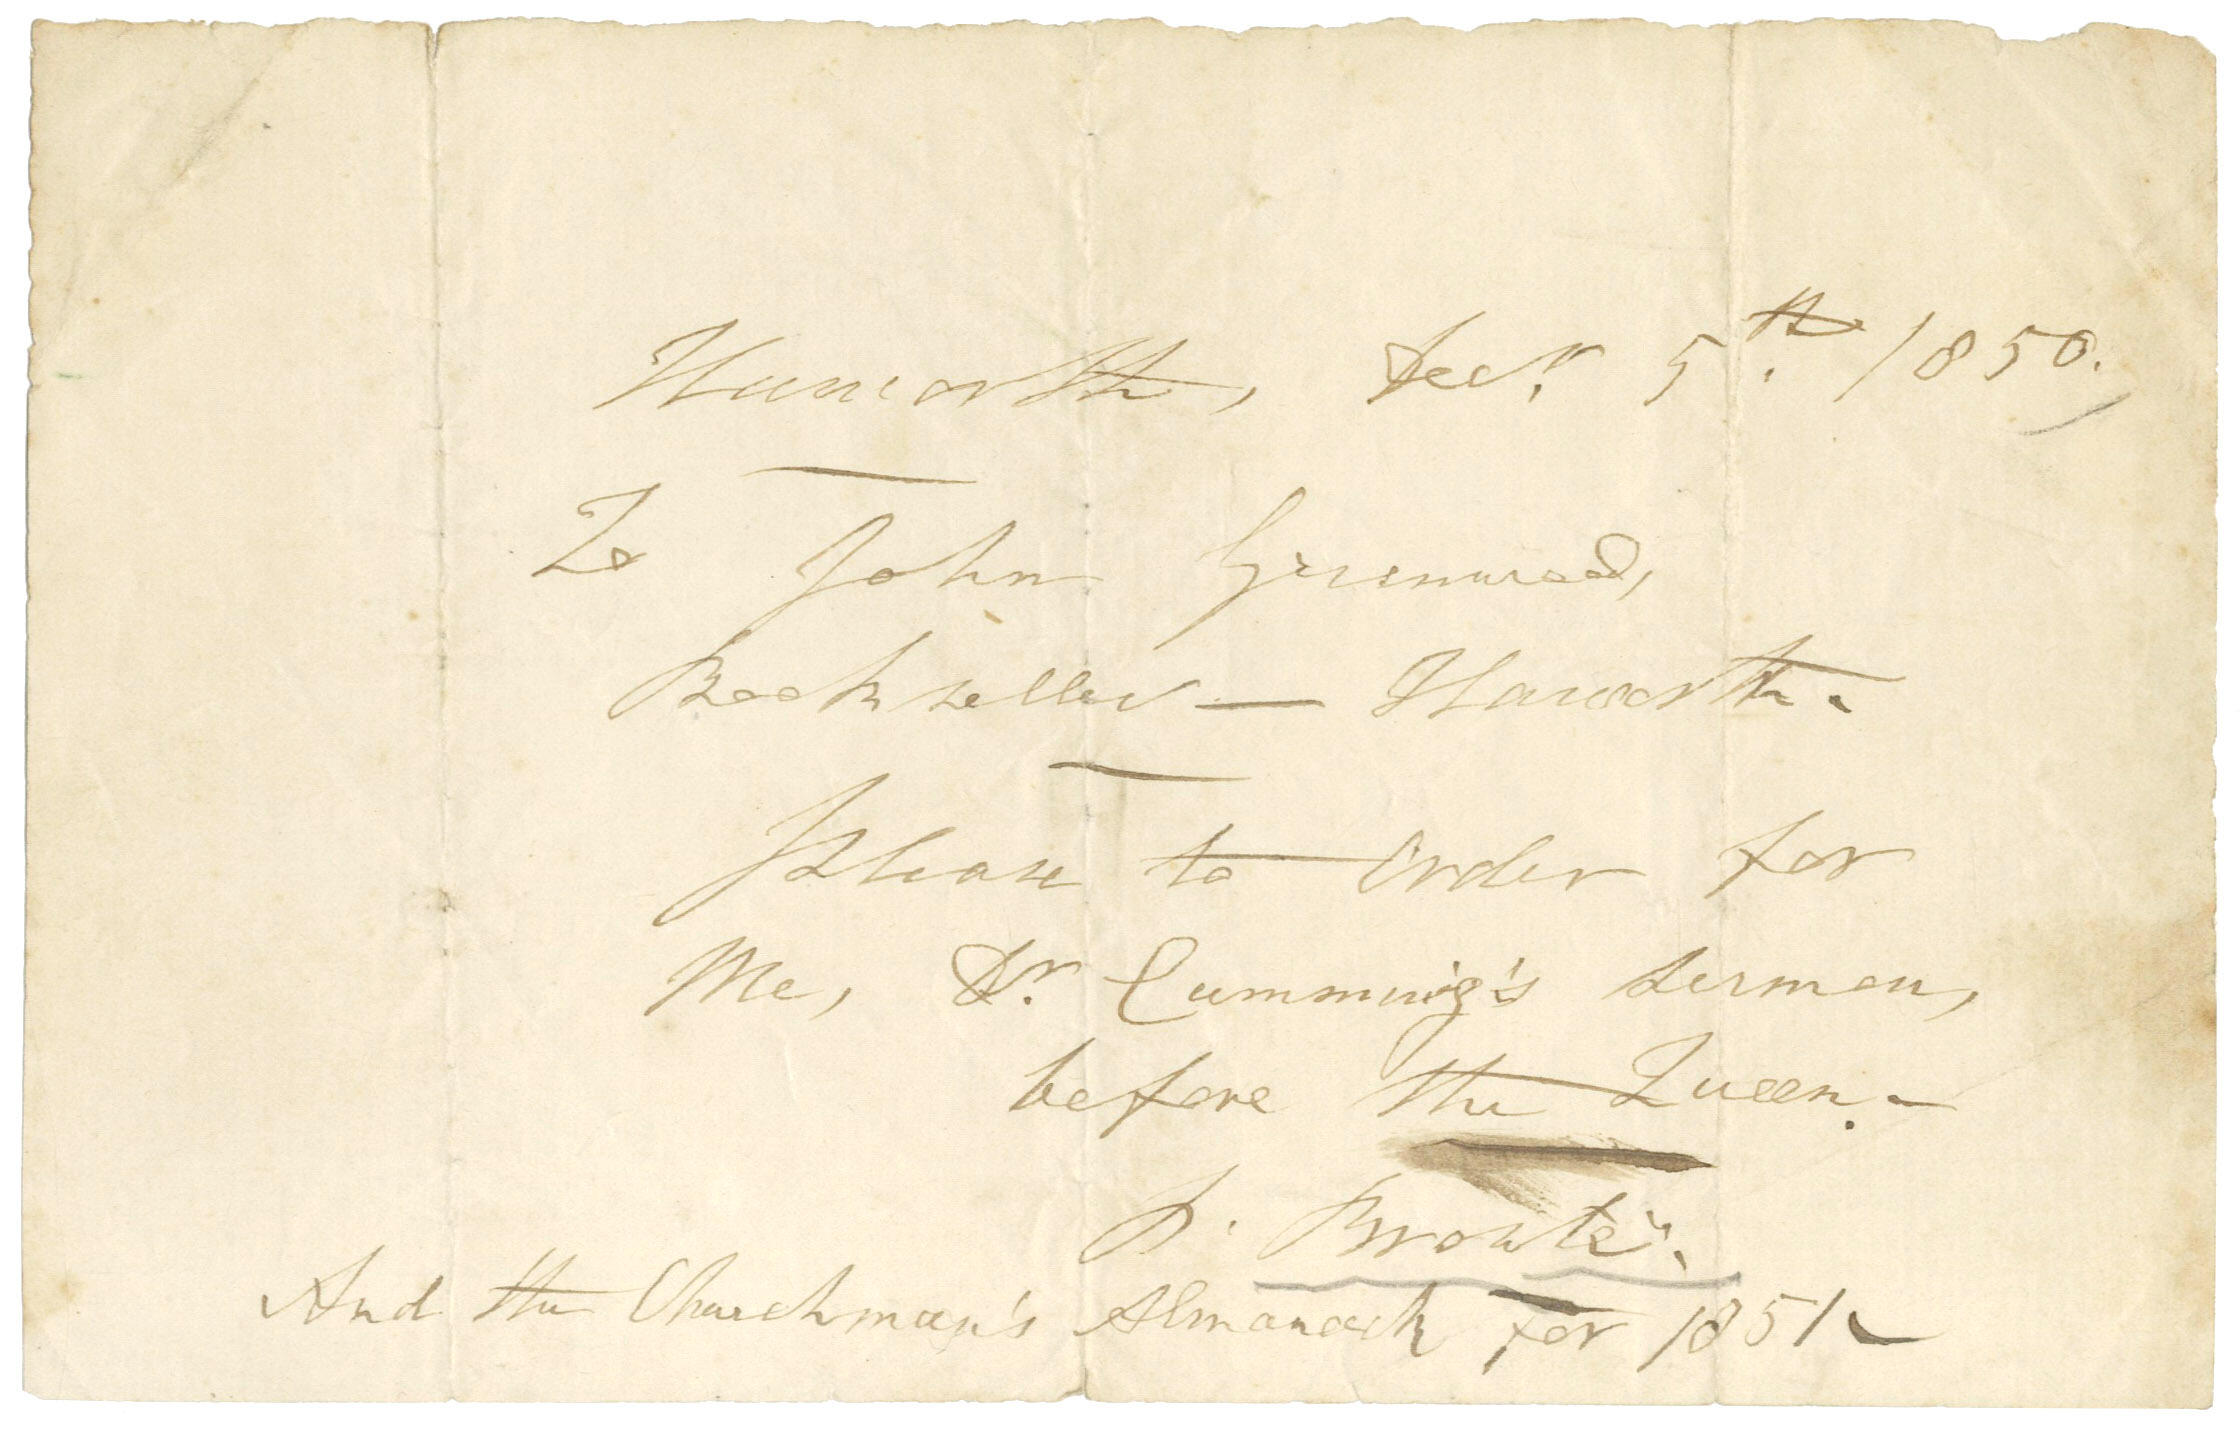 Haworth, Decr. 5th. 1850.
To John Greenwood,
Bookseller — Haworth.
Please to order for
Me, Dr. Cumming's sermon,
before the Queen. —
P. Brontë.
And the Churchman's Almanack for 1851 —